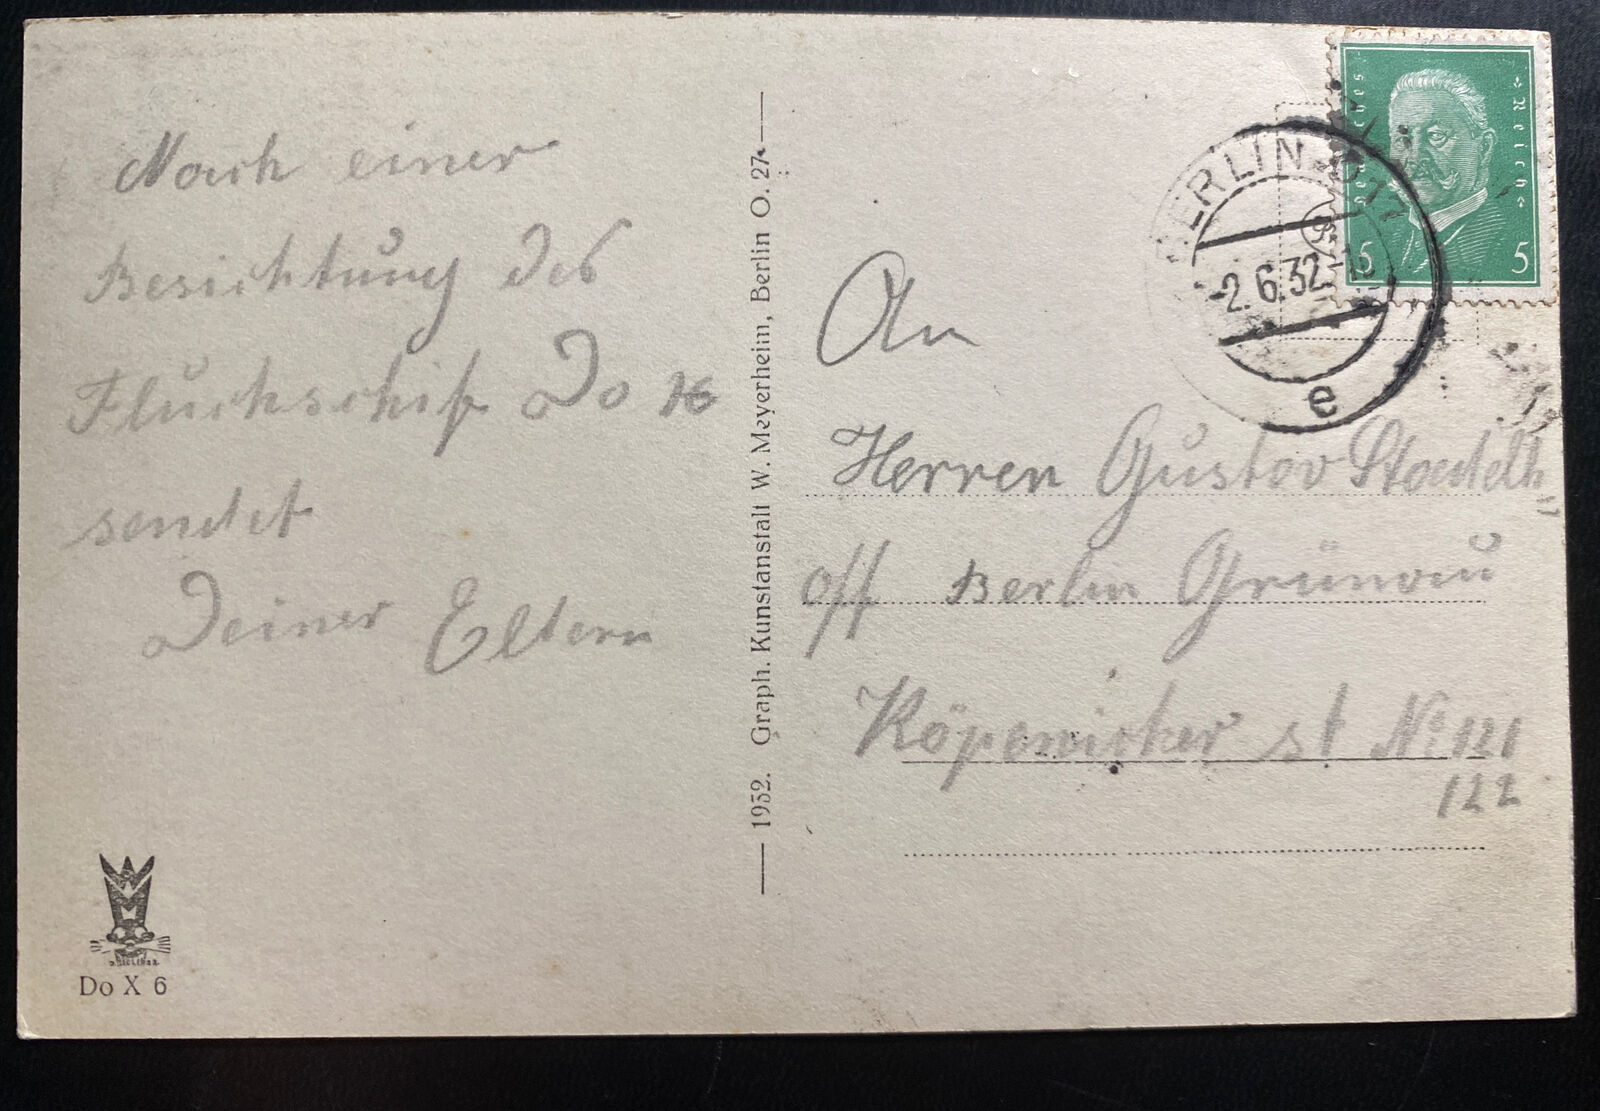 Nach einer
Besichtung des
Fluchschif Do X
sendet
Deiner Eltern
Do X 6
1932. Graph. Kunstanstalt W. Meyerheim, Berlin O. 27
Deutsches Reich
5 5
BERLIN O17
-2.6.32-
e
An
Herren Gustav
off Berlin Grünau
Köpenicker st № 121
122